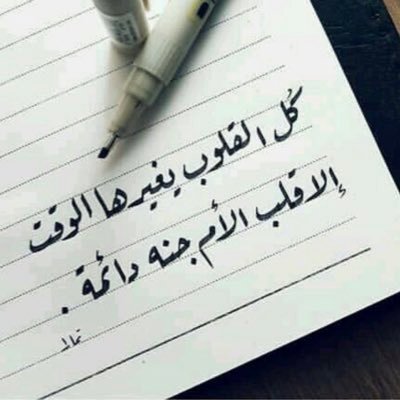 كُل القلوب يغيرها الوقت
إلا قلب الأم جنه دائمة .